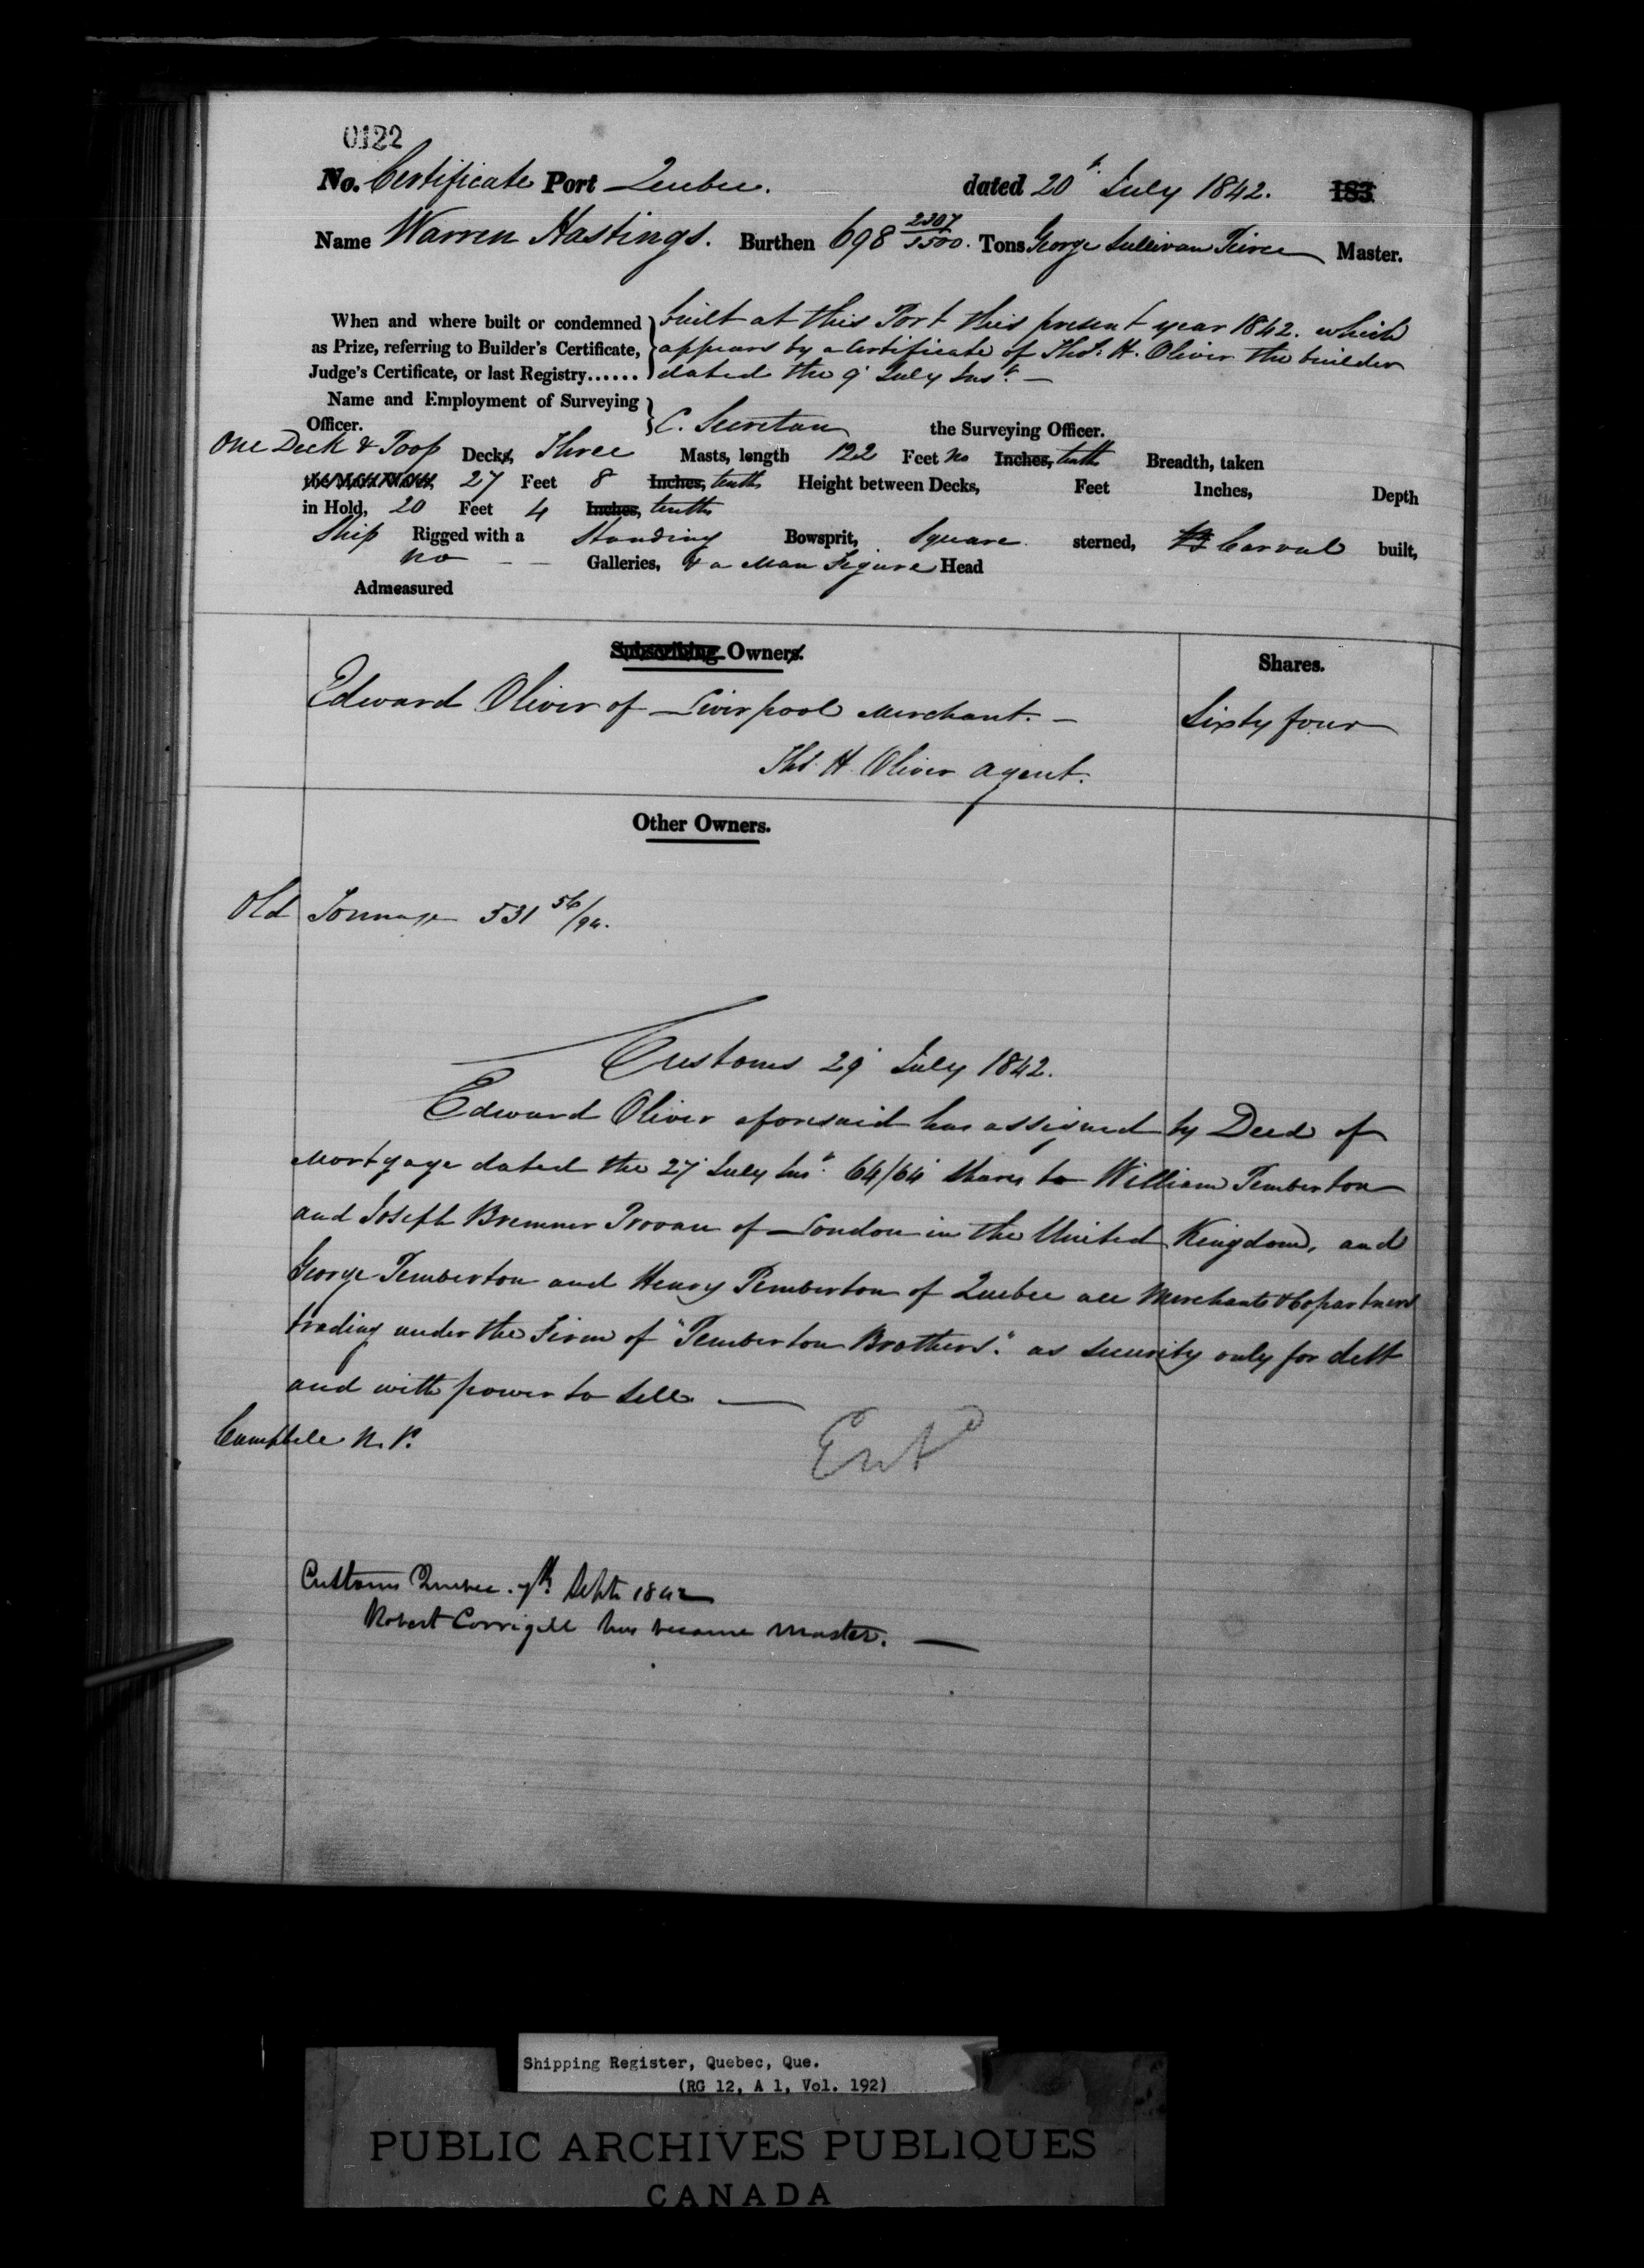 0122
No. Certificate Port Quebec. dated 20th July 1842. 183
Name Warren Hastings. Burthen 698 2307/3500. Tons George Sullivan Peirce Master.
When and where built or condemned as Prize, referring to Builder's Certificate, Judge's Certificate, or last Registry......
built at this Port this present year 1842. which
appears by a Certificate of Thos. H. Oliver the builder
dated the 9' July Inst. —
Name and Employment of Surveying Officer. C. Secretan the Surveying Officer.
One Deck & Poop Decks, Three Masts, length 122 Feet no Inches, tenth Breadth, taken
27 Feet 8 Inches, tenths Height between Decks, Feet Inches, Depth
in Hold, 20 Feet 4 Inches, tenths
Ship Rigged with a Standing Bowsprit, Square sterned, Carvel built,
no — — Galleries, & a Man Figure Head
Admeasured
Subscribing Owners.
Shares.
Edward Oliver of Liverpool Merchant. —
Sixty four
Thos. H. Oliver Agent.
Other Owners.
Old Tonnage 531 56/94.
Customs 29' July 1842.
Edward Oliver aforesaid has assigned by Deed of
Mortgage dated the 27' July Inst. 64/64 Shares to William Pemberton
and Joseph Bremner Provan of London in the United Kingdom, and
George Pemberton and Henry Pemberton of Quebec all Merchants & Copartners
trading under the Firm of "Pemberton Brothers." as security only for debt
and with power to sell. —
Campbell N. P.
Entd
Customs Quebec. 7th Septr 1842
Robert Corrigill has become Master. —
Shipping Register, Quebec, Que.
(RG 12, A 1, Vol. 192)
PUBLIC ARCHIVES PUBLIQUES
CANADA